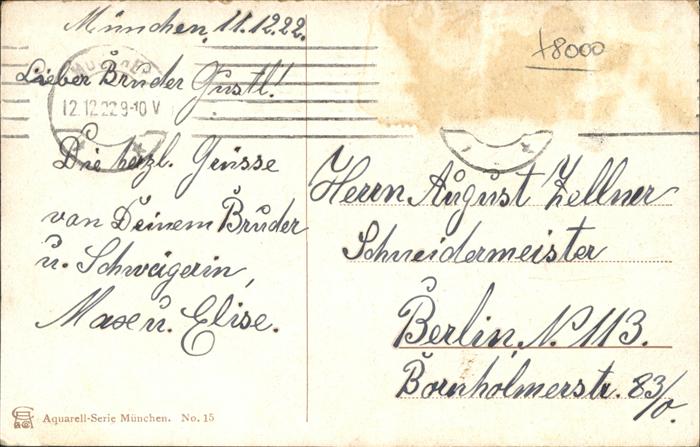 München, 11.12.22.
Lieber Bruder Gustl!
12.12.22.9-10 V
Die herzl. Grüsse
von Deinem Bruder
u. Schwägerin,
Max u. Elise.
+8000
Herrn August Zellner
Schneidermeister
Berlin, N. 113.
Bornholmerstr. 83/0.
Aquarell-Serie München. No. 15